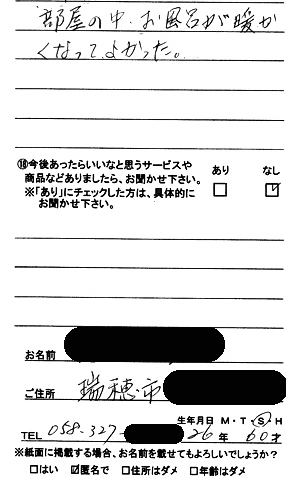 部屋の中、お風呂が暖か
くなってよかった。
⑱今後あったらいいなと思うサービスや
商品などありましたら、お聞かせ下さい。
※「あり」にチェックした方は、具体的に
お聞かせ下さい。
あり なし
□ ☑
お名前
ご住所 瑞穂市
生年月日 M・T・S・H
TEL 058-327- 26年 60才
※紙面に掲載する場合、お名前を載せてもよろしいでしょうか?
□はい ☑匿名で □住所はダメ □年齢はダメ